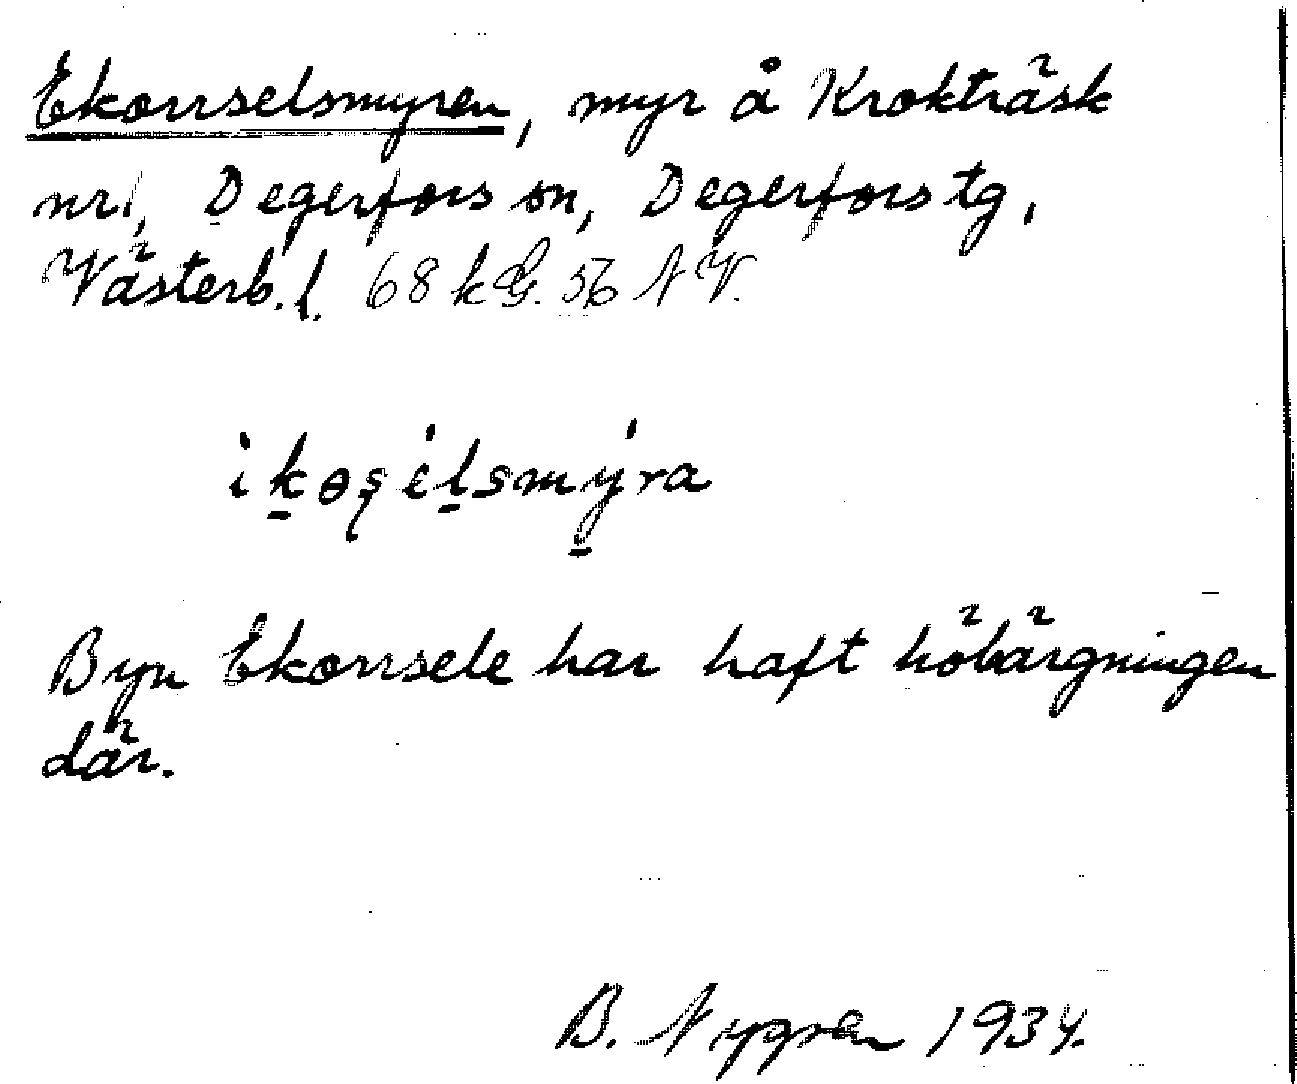 Ekorrselsmyren, myr å Krokträsk
nr 1, Degerfors sn, Degerfors tg,
Västerb. l. 68 kG. 56 NV.
ikɵşélsmýra
Byn Ekorrsele har haft höbärgningen
där.
B. Nygren 1934.